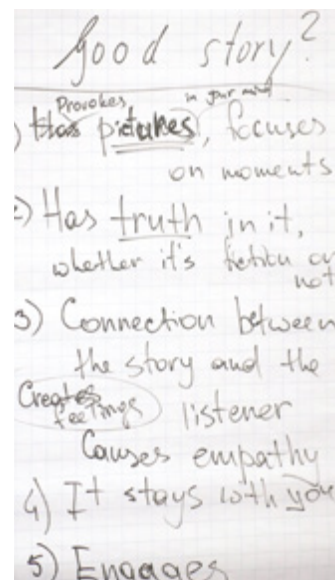 Good story?
Provokes in your mind
1) Has pictures, focuses
on moments
2) Has truth in it,
whether it's fiction or
not
3) Connection between
the story and the
Creates
feelings listener
Causes empathy
4) It stays with you
5) Engages